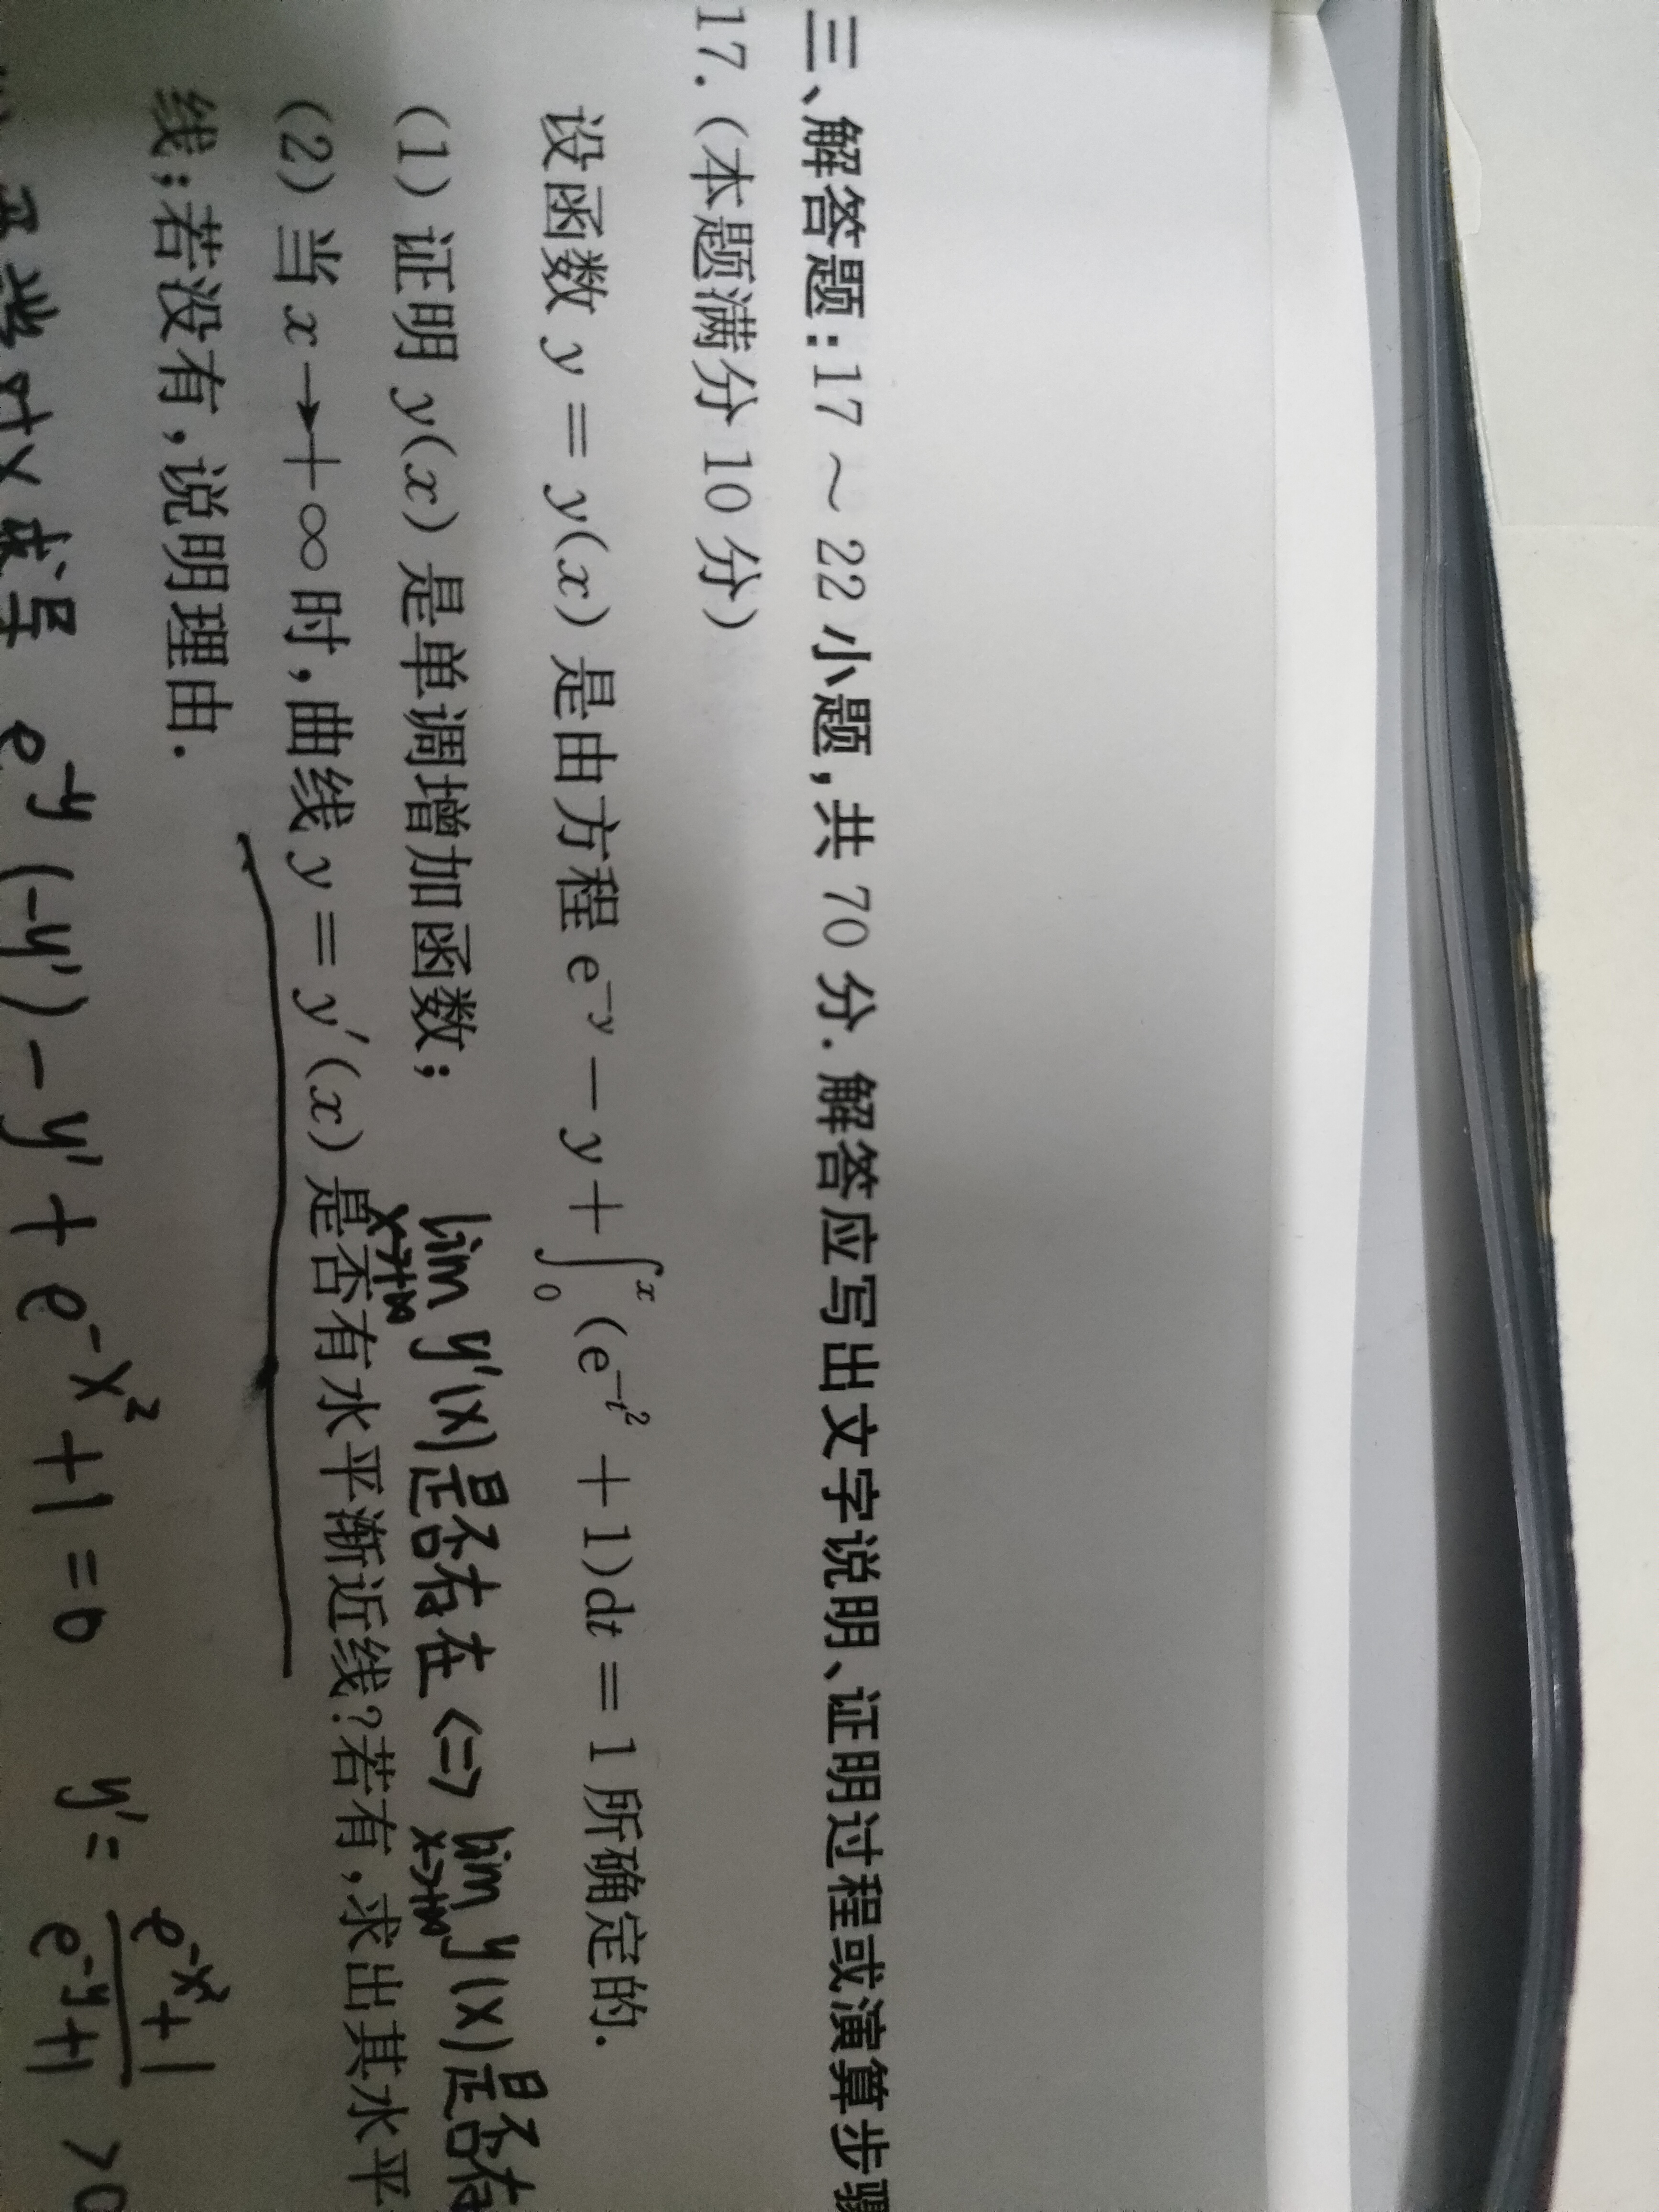 三、解答题:17～22小题,共70分.解答应写出文字说明、证明过程或演算步骤
17.(本题满分10分)
设函数 y = y(x) 是由方程 e⁻ʸ − y + ∫₀ˣ (e^{−t²} + 1)dt = 1 所确定的.
(1) 证明 y(x) 是单调增加函数;
lim x→+∞ y'(x) 是否存在 <=> lim x→+∞ y(x) 是否存
(2) 当 x→+∞ 时,曲线 y = y'(x) 是否有水平渐近线?若有,求出其水平
线;若没有,说明理由.
对x求导 e⁻ʸ(-y') - y' + e^{-x²} + 1 = 0 y' = (e^{-x²}+1)/(e⁻ʸ+1) >0